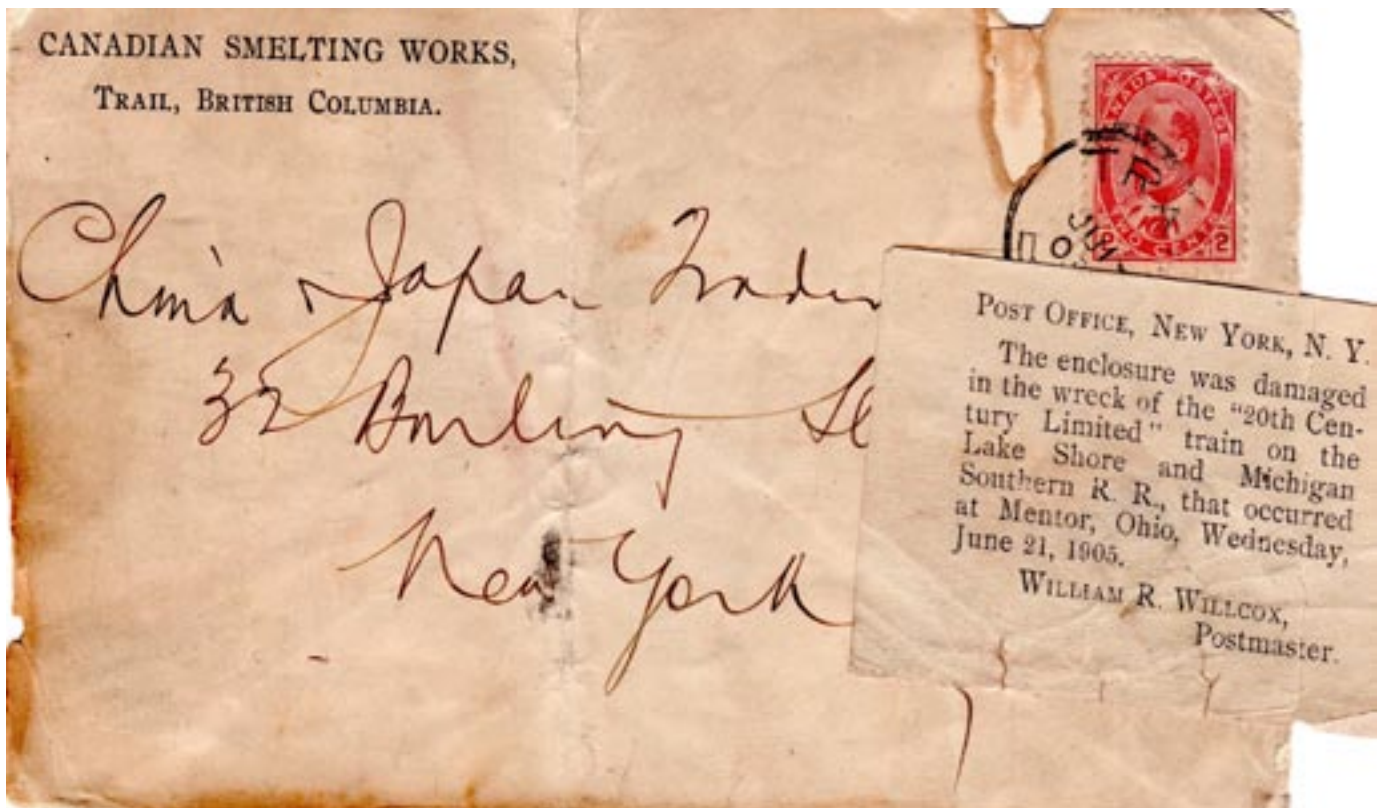 CANADIAN SMELTING WORKS,
TRAIL, BRITISH COLUMBIA.
CANADA POSTAGE
TWO CENTS
2 2
China & Japan Tradin
32 Burling Sl
New York
POST OFFICE, NEW YORK, N. Y.
The enclosure was damaged
in the wreck of the "20th Cen-
tury Limited" train on the
Lake Shore and Michigan
Southern R. R., that occurred
at Mentor, Ohio, Wednesday,
June 21, 1905.
WILLIAM R. WILLCOX,
Postmaster.